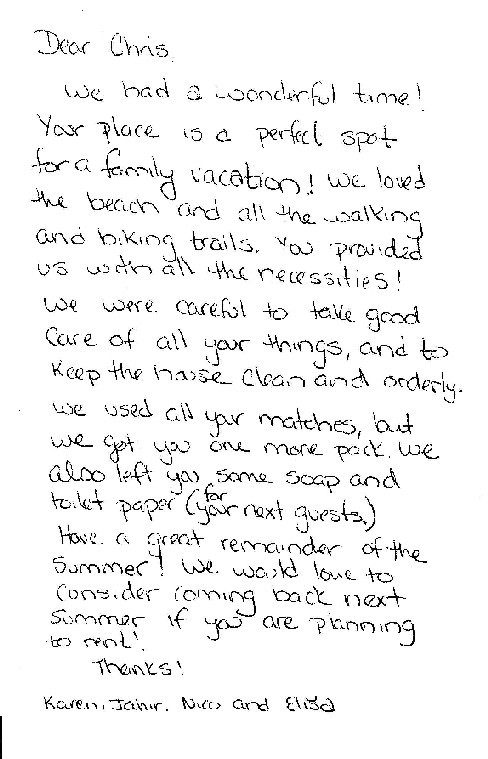 Dear Chris,
We had a wonderful time!
Your place is a perfect spot
for a family vacation! We loved
the beach and all the walking
and biking trails. You provided
us with all the necessities!
We were careful to take good
care of all your things, and to
keep the house clean and orderly.
We used all your matches, but
we got you one more pack. We
also left you some soap and
toilet paper (for your next guests.)
Have a great remainder of the
Summer! We would love to
consider coming back next
summer if you are planning
to rent!
Thanks!
Karen, Jahir, Nico and Elisa